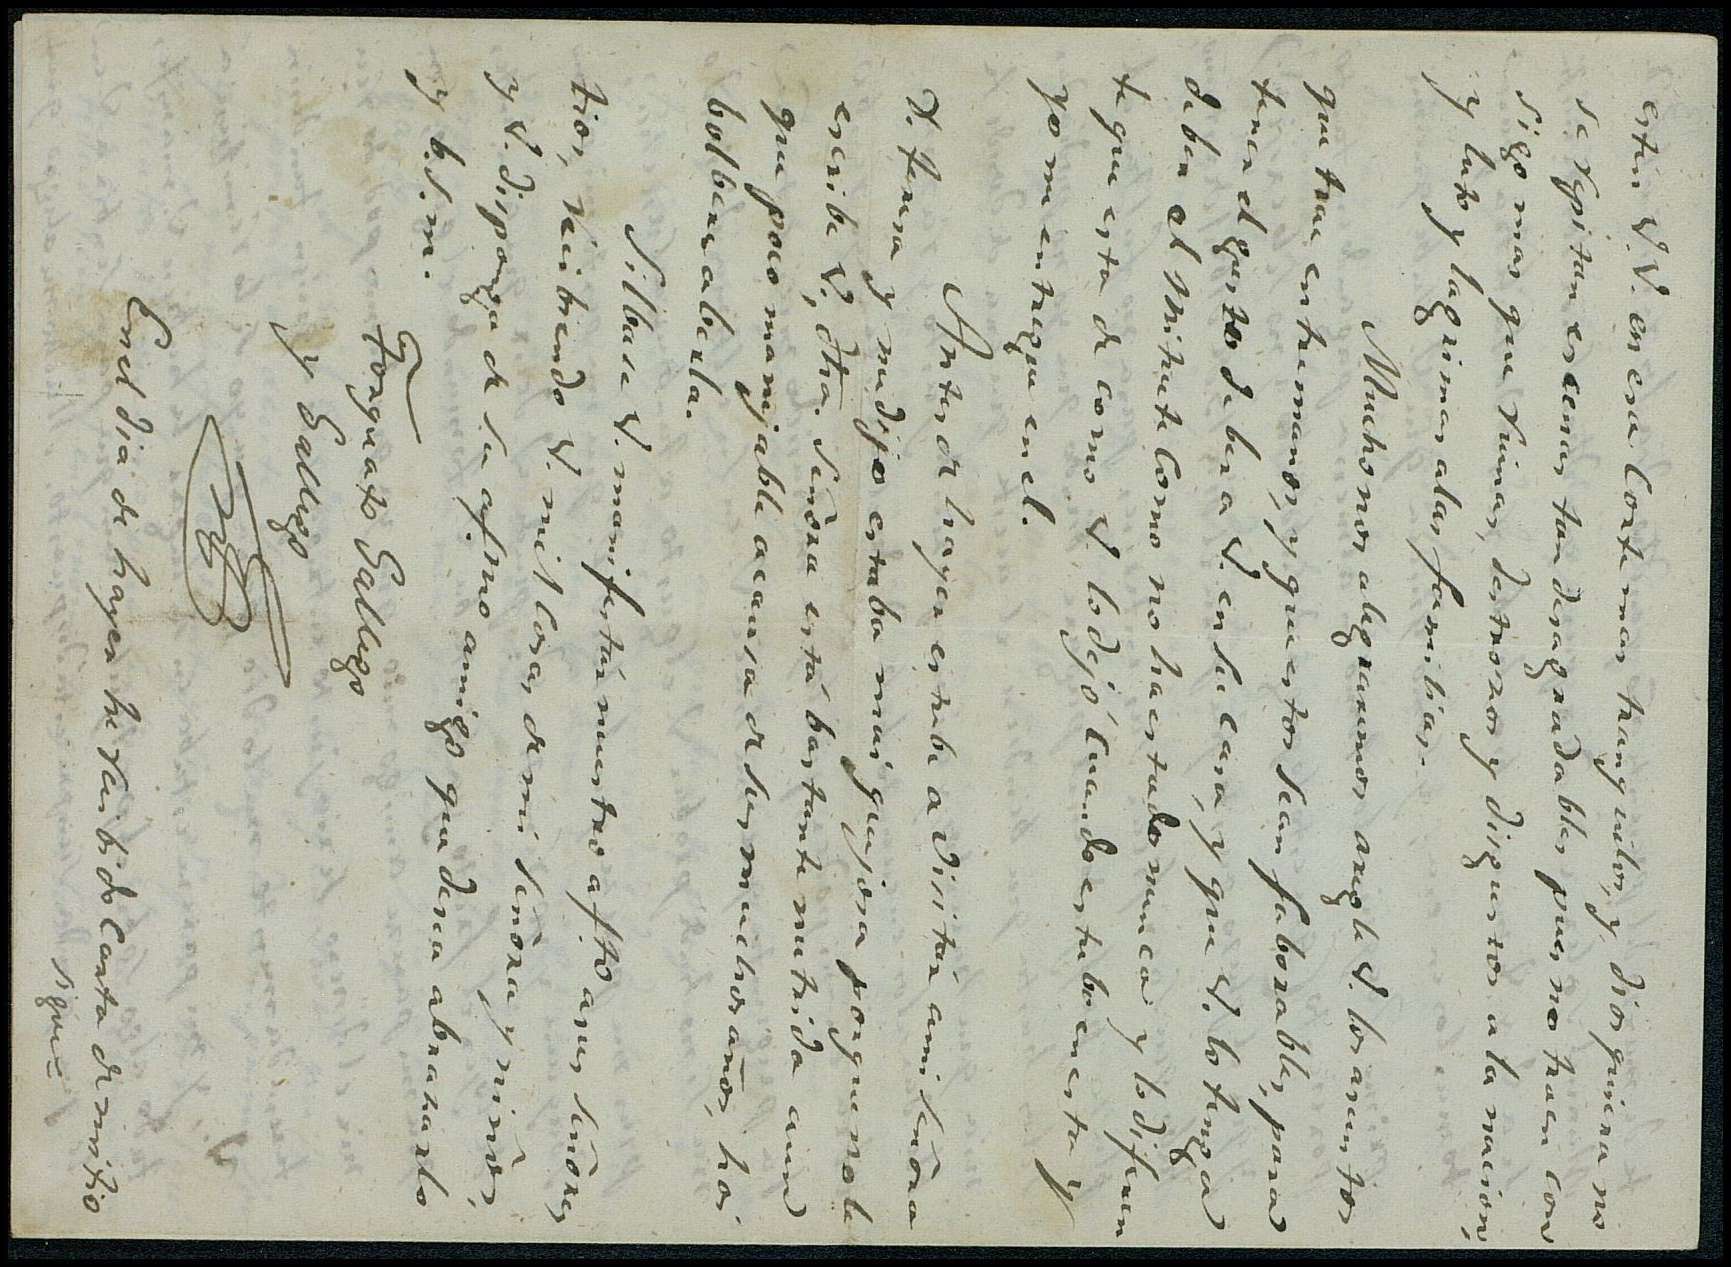 esten V.V. en esa Corte mas tranquilos, y Dios quiera no
se rrepitan escenas tan desagradables pues no traen con
sigo mas que ruinas, destrozos y disgustos a la nacion,
y luto y lagrimas a las familias.
Mucho nos alegraremos arregle V. los asuntos
que trae entre manos, y que estos sean faborables, para
tener el gusto de ber a V. en su casa, y que V. lo tenga
de ber el Mitute como no ha estado nunca y lo difieren
te que esta de como V. lo dejó cuando estubo en esta y
yo me entregue en el.
Antes de hayer estube a visitar a mi señora
D. Teresa y me dijo estaba mui quejosa porque no le
escribe V, dha. señora está bastante metida aun
que poco manejable a causa de sus muchos años, hoi
bolbere a berla.
Silbase V. manifestar nuestro afto a sus señores
tios, recibiendo V. mil cosas de mi señora, y niños,
y V. disponga de su afmo amigo que desea abrazarlo
y b.s.m.
Torquato Gallego
y Gallego
En el dia de hayer he recibido carta de mi tio
sigue